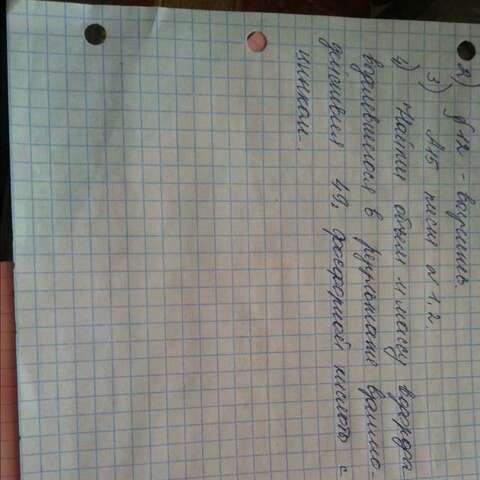 2) §12 - выучить
3) А15 письм N 1.2
4) Найти объём и массу водорода
выделевшегося в результате взаимо-
действия 49г фосфорной кислоты с
цинком.